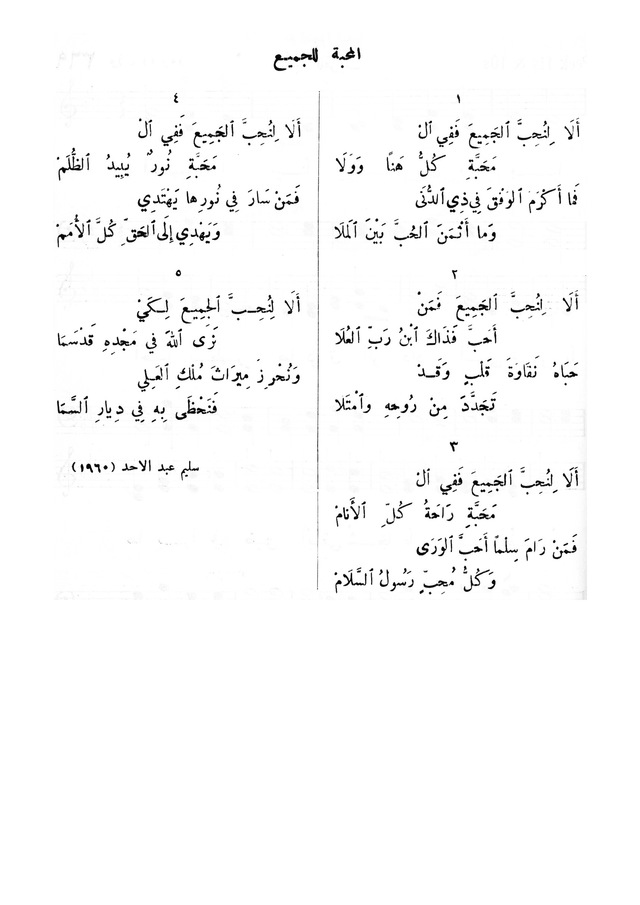 المحبة للجميع
١
أَلَا لِنُحِبَّ ٱلجَمِيعَ فَفِي ٱلْ
مَحَبَّةِ كُلُّ هَنًا وَوَلَا
فَما أَكْرَمَ ٱلوَفْقَ فِي ذِي ٱلدُّنَى
وَما أَثْمَنَ ٱلحُبَّ بَيْنَ ٱلمَلَا
٢
أَلَا لِنُحِبَّ ٱلجَمِيعَ فَمَنْ
أَحَبَّ فَذَاكَ ٱبْنُ رَبِّ ٱلعُلَا
حَبَاهُ نَقَاوَةَ قَلْبٍ وَقَدْ
تَجَدَّدَ مِنْ رُوحِهِ وٱمْتَلا
٣
أَلَا لِنُحِبَّ ٱلجَمِيعَ فَفِي ٱلْ
مَحَبَّةِ رَاحَةُ كُلِّ ٱلأَنامْ
فَمَنْ رَامَ سِلْمًا أَحَبَّ ٱلوَرَى
وَكُلُّ مُحِبٍّ رَسُولُ ٱلسَّلَامْ
٤
أَلَا لِنُحِبَّ ٱلجَمِيعَ فَفِي ٱلْ
مَحَبَّةِ نُورٌ يُبِيدُ ٱلظُّلَمْ
فَمَنْ سَارَ فِي نُورِها يَهْتَدِي
وَيَهْدِي إِلَى ٱلحَقِّ كُلَّ ٱلأُمَمْ
٥
أَلَا لِنُحِبَّ ٱلجَمِيعَ لِكَيْ
نَرَى ٱللهَ فِي مَجْدِهِ قَدْ سَمَا
وَنُحْرِزَ مِيرَاثَ مُلْكِ ٱلعَلِي
فَنَحْظَى بِهِ فِي دِيارِ ٱلسَّمَا
سليم عبد الاحد (١٩٦٠)